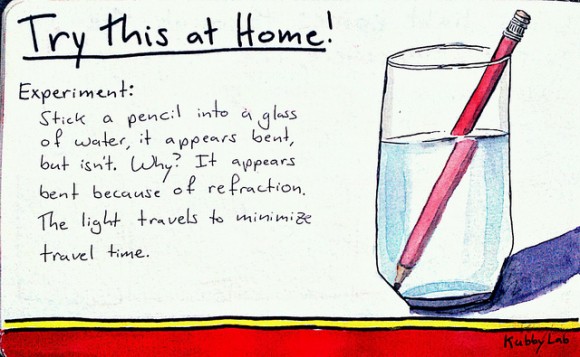 Try this at Home!
Experiment:
Stick a pencil into a glass
of water, it appears bent,
but isn't. Why? It appears
bent because of refraction.
The light travels to minimize
travel time.
KubbyLab